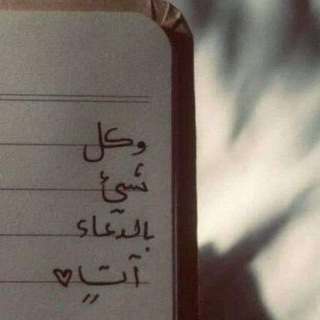 وكل
شيئ
بالدّعاء
آتٍ ♥